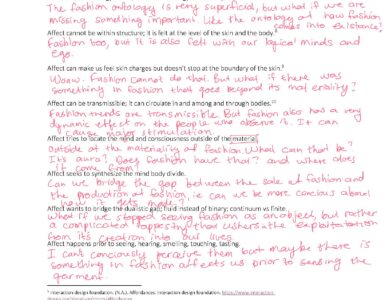 The fashion ontology is very superficial, but what if we are
missing something important like the ontology of how fashion
comes into existance?
Affect cannot be within structure; it is felt at the level of the skin and the body.⁸
Fashion too, but it is also felt with our logical minds and
ego.
Affect can make us feel skin charges but doesn't stop at the boundary of the skin.⁹
Woaw. Fashion cannot do that. But what if there was
something in fashion that goes beyond its materality?
Affect can be transmissible; it can circulate in and among and through bodies.¹⁰
Fashion trends are transmissible. But fashion also has a very
dynamic effect on the people who observe it. It can
cause major stimulation
Affect tries to locate the mind and consciousness outside of the material.
Outside of the materiality of fashion. What can that be?
It's aura? Does fashion have that? and where does
it come from?
Affect seeks to synthesize the mind body divide.
Can we bridge the gap between the sale of fashion and
the production of fashion, ie can we be more concious about
how it gets made?
Affect wants to bridge the dualistic pair; fluid instead of binary; continuum vs finite.
What if we stopped seeing fashion as an object, but rather
a complicated happening that ushers the exploitation
from its creation into our lives
Affect happens prior to seeing, hearing, smelling, touching, tasting.
I can't conciously perceive them but maybe there is
something in fashion affects us prior to sensing the
garment.
Interaction design foundation. (N.A.). Affordances. Interaction design foundation. https://www.interaction-